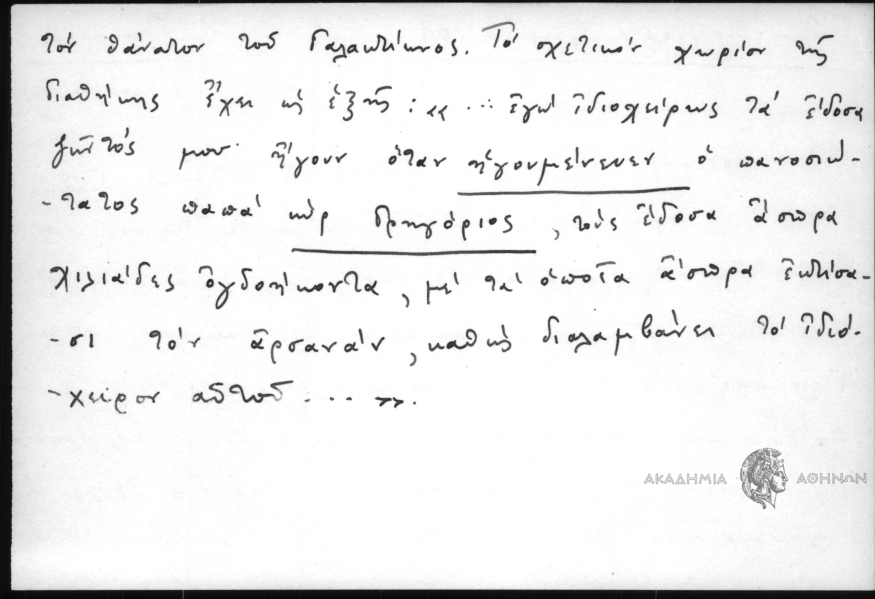 τόν θάνατον τοῦ Γαλακτίωνος. Τό σχετικόν χωρίον τῆς
διαθήκης ἔχει ὡς ἑξῆς : «... ἐγώ ἰδιοχείρως τά ἔδοσα
ζῶντός μου· ἤγουν ὅταν ἡγουμένευεν ὁ πανοσιώ-
-τατος παπά κύρ Γρηγόριος, τούς ἔδοσα ἄσπρα
χιλιάδες ὀγδοήκοντα, μέ τά ὁποῖα ἄσπρα ἐκτίσα-
-σι τόν ἀρσανάν, καθώς διαλαμβάνει τό ἰδιό-
-χειρον αὐτοῦ ... ».
ΑΚΑΔΗΜΙΑ ΑΘΗΝΩΝ